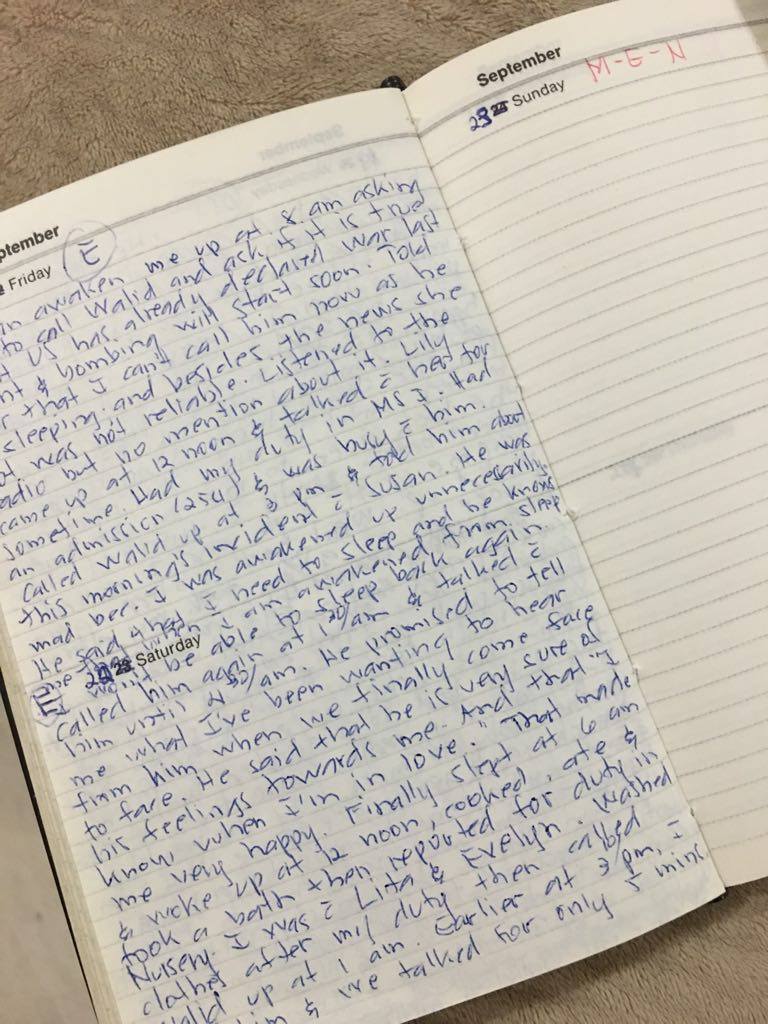 ptember
Friday
E
n awaken me up at 8 am asking
to call Walid and ask if it is true
t US has already declared war last
nt & bombing will start soon. Told
r that I can't call him now as he
sleeping and besides the news she
ot was not reliable. Listened to the
adio but no mention about it. Lily
came up at 12 noon & talked c̄ her for
sometime. Had my duty in MS I. Had
an admission (254) & was busy c̄ him.
Called Walid up at 3 pm & told him about
this morning's incident c̄ Susan. He was
mad bec. I was awakened up unnecessarily.
He said that I need to sleep and he knows
me that when I am awakened from sleep
I won't be able to sleep back again.
Saturday
Called him again at 1 20/ am & talked c̄
him until 4 30/ am. He promised to tell
me what I've been wanting to hear
from him when we finally come face
to face. He said that he is very sure of
his feelings towards me. And that "I
know when I'm in love." That made
me very happy. Finally slept at 6 am
& woke up at 12 noon, cooked, ate &
took a bath then reported for duty in
Nursery. I was c̄ Lita & Evelyn. Washed
clothes after my duty then called
Walid up at 1 am. Earlier at 3 pm, I
him & we talked for only 5 mins
September
23 Sunday
M-E-N